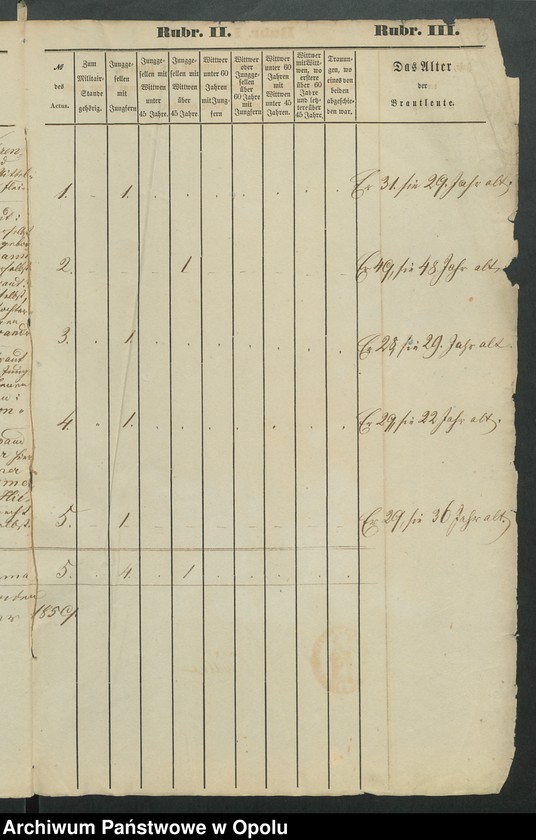 Rubr. II. Rubr. III.
№
des
Actus.
Zum
Militair-
Stande
gehörig.
Jungge-
sellen
mit
Jungfern
Jungge-
sellen mit
Wittwen
unter
45 Jahre.
Jungge-
sellen mit
Wittwen
über
45 Jahre.
Wittwer
unter 60
Jahren
mit Jung-
fern
Wittwer
oder
Jungge-
sellen
über
60 Jahr
mit
Jungfern
Wittwer
unter 60
Jahren
mit
Wittwen
unter 45
Jahren.
Wittwer
mit Witt-
wen, wo
erstere
über 60
Jahre
und letz-
tere über
45 Jahre.
Traun-
gen, wo
eines von
beiden
abgeschie-
den war.
Das Alter
der
Brautleute.
1. 1. Er 31. sie 29. Jahr alt.
2. 1 Er 49, sie 48 Jahr alt.
3. 1. sie 29. Jahr alt
4. 1. Er 29, sie 22 Jahr alt.
5. 1. Er 29, sie 36 Jahr alt.
5. 4. 1
Archiwum Państwowe w Opolu